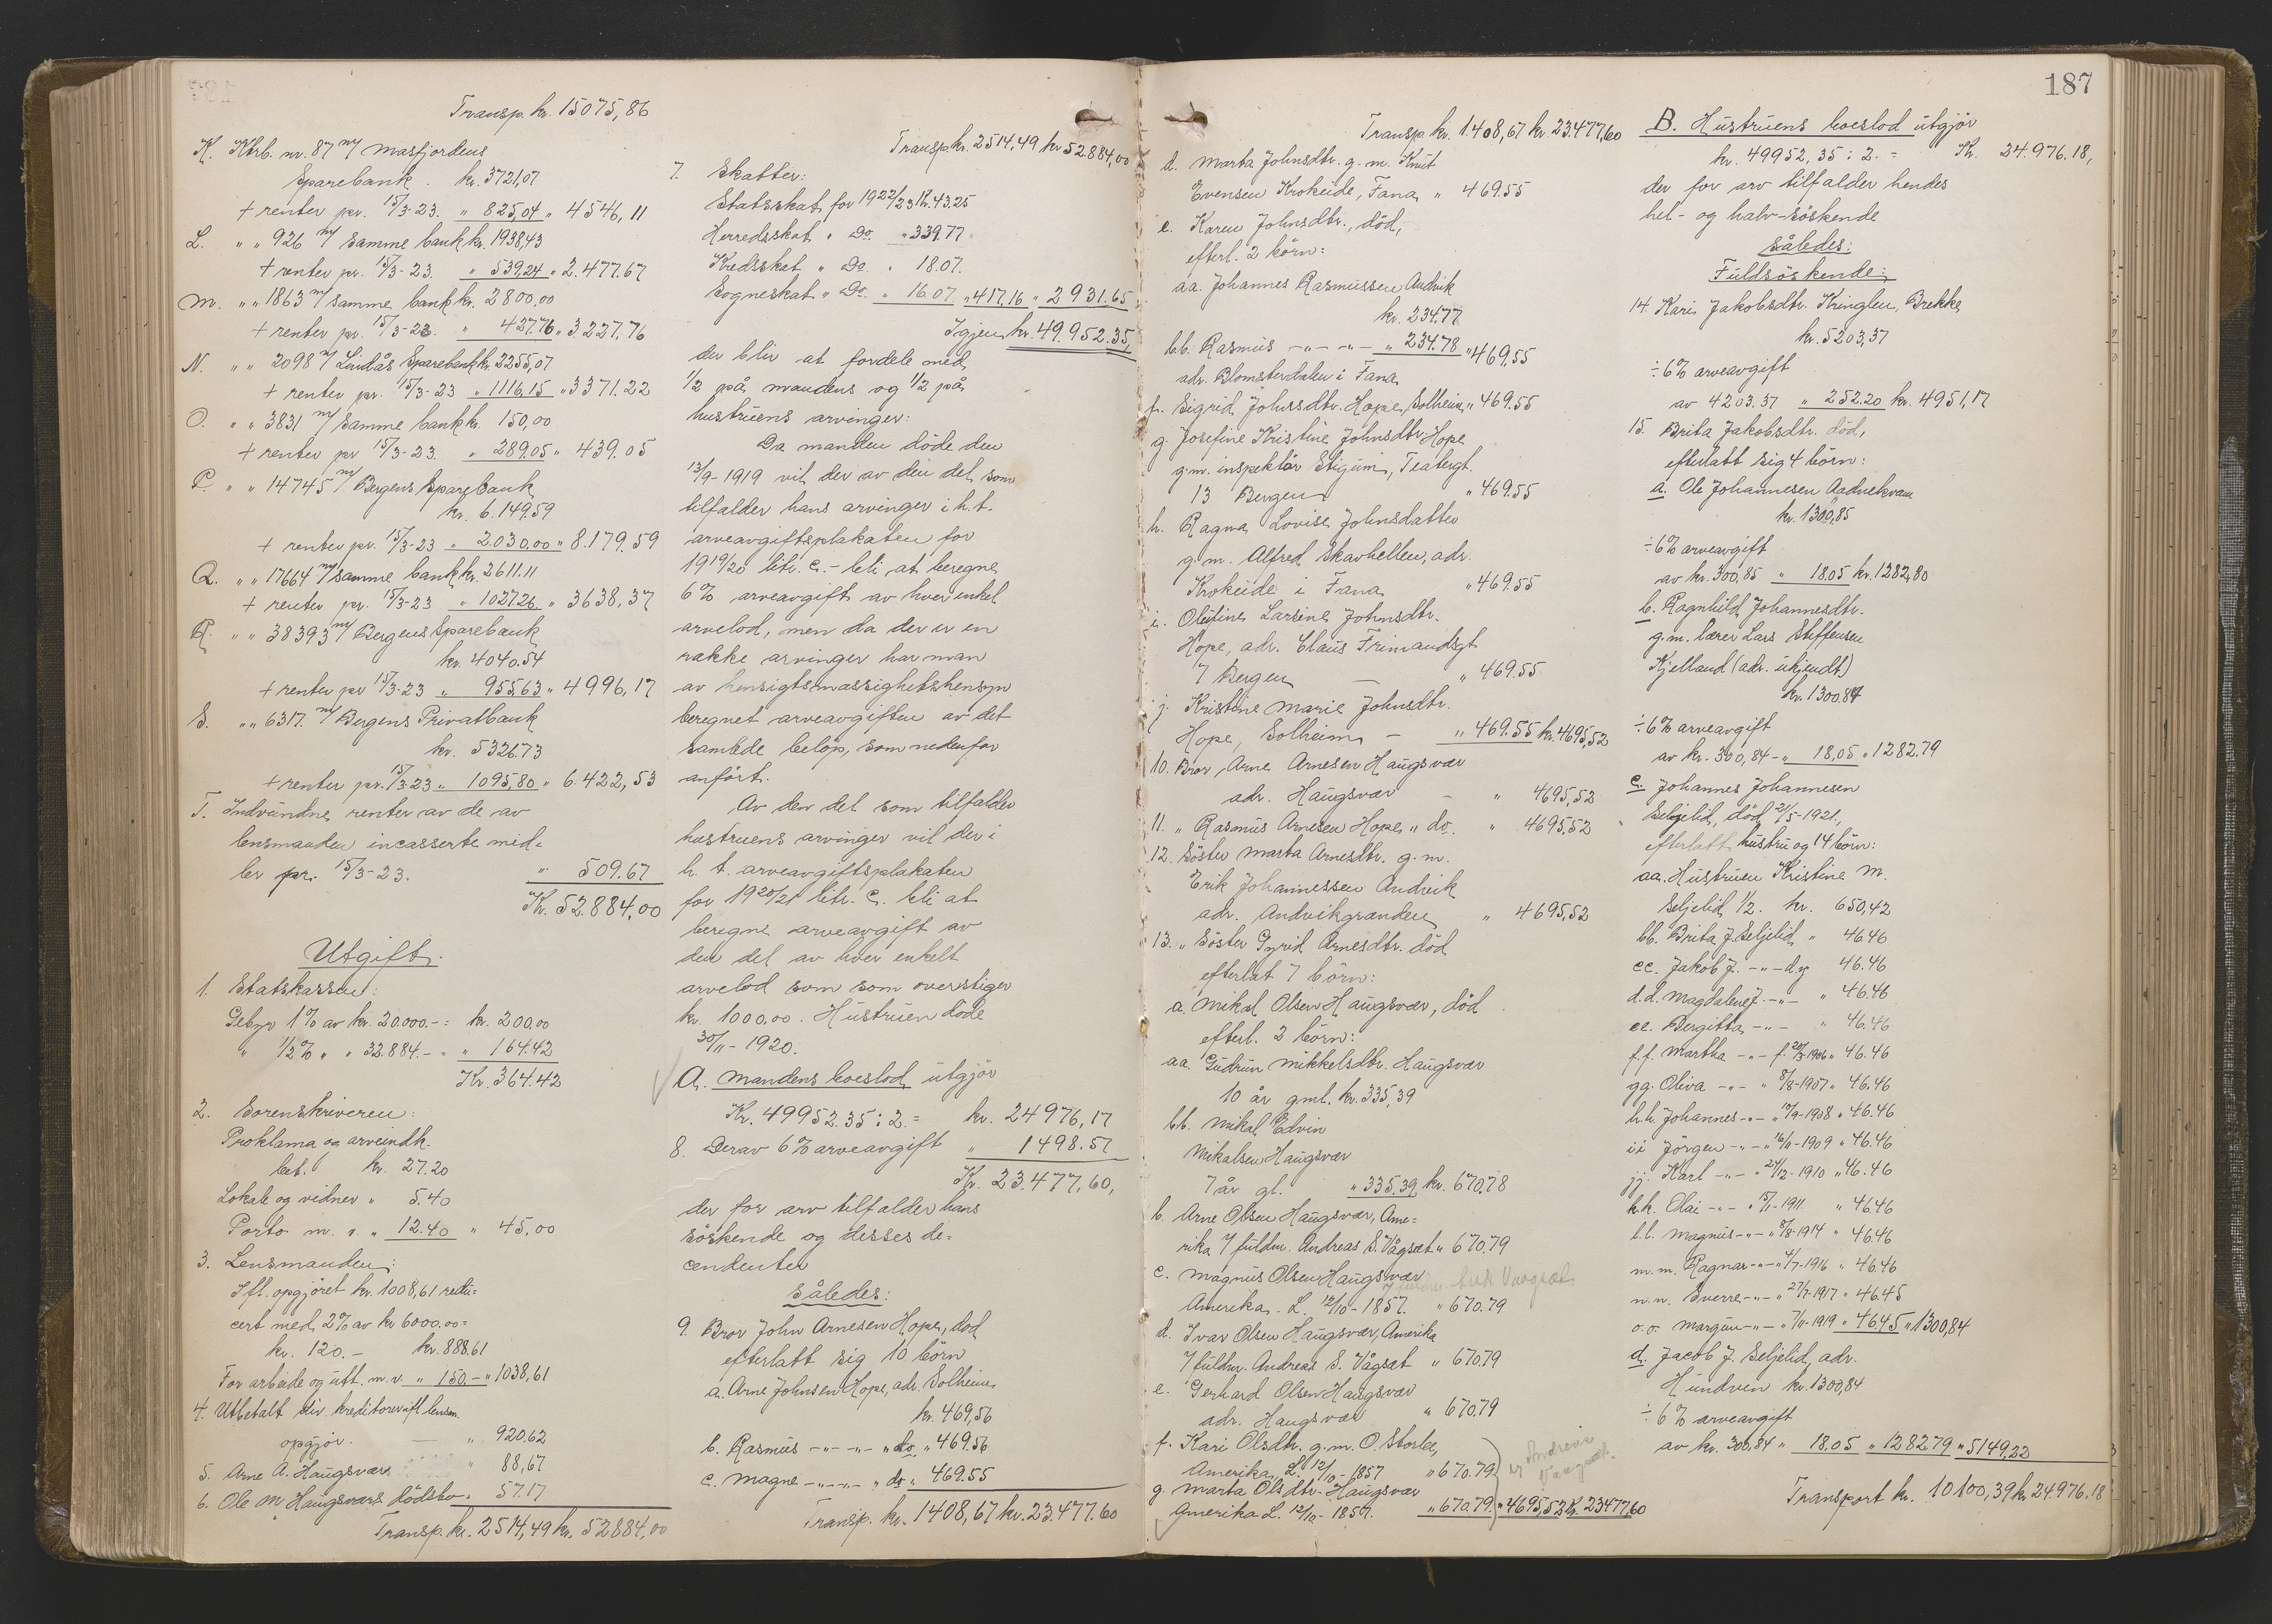 Transp. kr. 15075,86
K. Ktrb. nr. 87 m/ Masfjordens
Sparebank. kr. 3721,07
+ renter pr. 15/3-23. " 825,04 " 4546,11
L. " " 926 m/ samme bank kr. 1938,43
+ renter pr. 15/3-23. " 539,24 " 2.477.67
M. " " 1863 m/ samme bank kr. 2800,00
+ renter pr. 15/3-23. " 427.76 " 3.227,76
N. " " 2098 m/ Lindås Sparebank kr. 2255,07
+ renter pr. 15/3-23 " 1116,15 " 3371.22
O. " " 3831 m/ samme bank kr. 150,00
+ renter pr 15/3-23. " 289.05 " 439.05
P. " " 14745 m/ Bergens Sparebank
kr. 6.149.59
+ renter pr. 15/3-23 " 2.030.00 " 8.179.59
Q. " " 17664 m/ samme bank kr. 2611.11
+ renter pr. 15/3-23 " 1027.26 " 3638,37
R. " " 38393 m/ Bergens Sparebank
kr. 4040.54
+ renter pr 15/3-23 " 955.63 " 4996,17
S. " " 6317. m/ Bergens Privatbank
kr. 5326.73
+ renter pr. 15/3-23 " 1095,80 " 6.422,53
T. Indvundne renter av de av
lensmanden incasserte mid-
ler pr. 15/3-23. " 509.67
Kr. 52.884,00
Utgift.
1. Statskassen:
Gebyr 1% av kr. 20.000.- = kr. 200,00
" 1/2% " " 32.884.- = " 164.42
Kr. 364.42
2. Sorenskriveren:
Proklama og arveindk.
bet. kr. 27.20
Lokale og vidner " 5.40
Porto m. v. " 12.40 " 45,00
3. Lensmanden:
Ifl. opgjöret kr. 1008,61 redu-
cert med 2% av kr 6000.00 =
kr. 120.- kr. 888.61
For arbeide og utl. m.v. " 150.- " 1038,61
4. Utbetalt div. kreditorer ifl lensm.
opgjör. — " 920.62
5. Arne A. Haugsvær " 88,67
6. Ole M Haugsværs dödsbo " 57.17
Transp. kr. 2514,49 kr. 52884,00
Transp. kr. 2514,49 kr 52.884,00
7. Skatter:
Statsskat for 1922/23 kr. 43.25
Herredsskat " Do. " 339.77
Kredsskat " Do. " 18.07.
Sogneskat " Do. " 16.07 " 417,16 " 2931.65
Igjen kr. 49.952.35,
der blir at fordele med
1/2 på mandens og 1/2 på
hustruens arvinger:
Da manden döde den
13/9-1919 vil der av den del som
tilfalder hans arvinger i h. t.
arveavgiftsplakaten for
1919/20 litr. C. - bli at beregne
6% arveavgift av hver enkel
arvelod, men da der er en
række arvinger har man
av hensigtsmæssighetshensyn
beregnet arveavgiften av det
samlede belöp, som nedenfor
anfört.
Av den del som tilfalder
hustruens arvinger vil der i
h. t. arveavgiftsplakaten
for 1920/21 litr. C. bli at
beregne arveavgift av
den del av hver enkelt
arvelod som som overstiger
kr. 1000,00. Hustruen döde
30/11-1920.
A. Mandens boeslod utgjör
Kr. 49952.35 : 2. = kr. 24976,17
8. Derav 6% arveavgift " 1498.57
Kr. 23.477,60,
der for arv tilfalder hans
söskende og disses de-
cendenter
Således:
9. Bror John Arnesen Hope, död
efterlatt sig 10 börn
a. Arne Johnsen Hope, adr. Solheim
kr. 469,56
b. Rasmus -"- -"- " do. " 469.56
c. Magne -"- -"- " do " 469.55
Transp. kr. 1408,67 kr. 23.477.60
187
Transp. kr. 1408,67 kr. 23.477,60
d. Marta Johnsdtr. g. m. Knut
Evensen Krokeide, Fana " 469.55
e. Karen Johnsdtr., död,
efterl. 2 börn:
aa. Johannes Rasmussen Andvik
kr. 234.77
bb. Rasmus -"- -"- " 234.78 " 469.55
adr. Blomsterdalen i Fana
f. Sigrid Johnsdtr. Hope, Solheim " 469.55
g. Josefine Kristine Johnsdtr Hope
g.m. inspektör Stigum, Teatergt.
13 Bergen " 469.55
h. Ragna Lovise Johnsdatter
g. m. Alfred Skarhellen, adr.
Krokeide i Fana " 469.55
i. Oleline Larsine Johnsdtr.
Hope, adr. Claus Frimandsgt
7 Bergen — " 469.55
j. Kristine Marie Johnsdtr.
Hope, Solheim - " 469.55 kr. 4695,52
10. Bror, Arne Arnesen Haugsvær
adr. Haugsvær - " 4695,52
11. " Rasmus Arnesen Hope " do. " 4695,52
12. Söster Marta Arnesdtr. g. m.
Erik Johannessen Andvik
adr. Andvikgrænden " 4695,52
13. " Söster Gyrid Arnesdtr. död
efterlat 7 börn:
a. Mikal Olsen Haugsvær, död
efterl. 2 börn:
aa. Gudrun Mikkelsdtr. Haugsvær
10 år gml. kr. 335,39
bb. Mikal Edvin
Mikalsen Haugsvær
7 år gl. " 335.39 kr. 670.78
b. Arne Olsen Haugsvær, Ame-
rika 7 fuldm. Andreas S. Vågset " 670.79
c. Magnus Olsen Haugsvær
Amerika. L. 12/10-1857. " 670.79
d. Ivar Olsen Haugsvær, Amerika
7 fuldm. Andreas S. Vågset " 670.79
e. Gerhard Olsen Haugsvær
adr. Haugsvær " 670.79
f. Kari Olsdtr. g. m. O. Storlee,
Amerika, L. 12/10-1857 " 670.79
g. Marta Olsdtr. Haugsvær
Amerika L. 12/10-1857. " 670.79. " 4695,52 kr. 23477,60
B. Hustruens boeslod utgjör
kr. 49952,35 : 2. = Kr. 24.976.18,
der for arv tilfalder hendes
hel- og halv-söskende
Således:
Fuldsöskende:
14. Kari Jakobsdtr. Kringlen, Brekke
kr. 5203,37
÷ 6% arveavgift
av 4203.37 " 252.20 kr. 4951,17
15. Brita Jakobsdtr. död,
efterlatt sig 4 börn:
a. Ole Johannesen Aadnekvam
kr. 1300,85
÷ 6% arveavgift
av kr. 300,85 " 18.05 kr. 1282,80
b. Ragnhild Johannesdtr.
g.m. lærer Lars Steffensen
Kjelland (adr. ukjendt)
kr. 1300.84
÷ 6% arveavgift
av kr. 300,84 - " 18,05 " 1282.79
c. Johannes Johannesen
Seljelid, död 21/5-1921,
efterlatt hustru og 14 börn:
aa. Hustruen Kristine M.
Seljelid 1/2. kr. 650,42
bb. Brita J. Seljelid " 46.46
cc. Jakob J. -"- d.y. 46.46
d.d. Magdalene J. -"- " 46.46
ee. Bergitta -"- " 46.46
f.f. Martha -"- f. 20/3-1906 " 46.46
gg. Oliva -"- " 8/8-1907 " 46.46
h.h. Johannes -"- " 10/9-1908 " 46.46
ii Jörgen -"- " 16/11-1909 " 46.46
jj. Karl -"- " 24/12-1910 " 46.46
k.k. Olai -"- " 15/1-1911 " 46.46
l.l. Magnus -"- " 8/8-1914 " 46.46
m.m. Ragnar -"- " 4/7-1916 " 46.46
n.n. Sverre -"- " 27/7-1917 " 46.45
o.o. Margun -"- " 7/11-1919 " 46.45 " 1300,84
d. Jacob J. Seljelid, adr.
Hundven kr. 1300,84
÷ 6% arveavgift
av kr. 300,84 " 18.05 " 1282.79 " 5149,22
Transport kr. 10100,39 kr 24.976.18